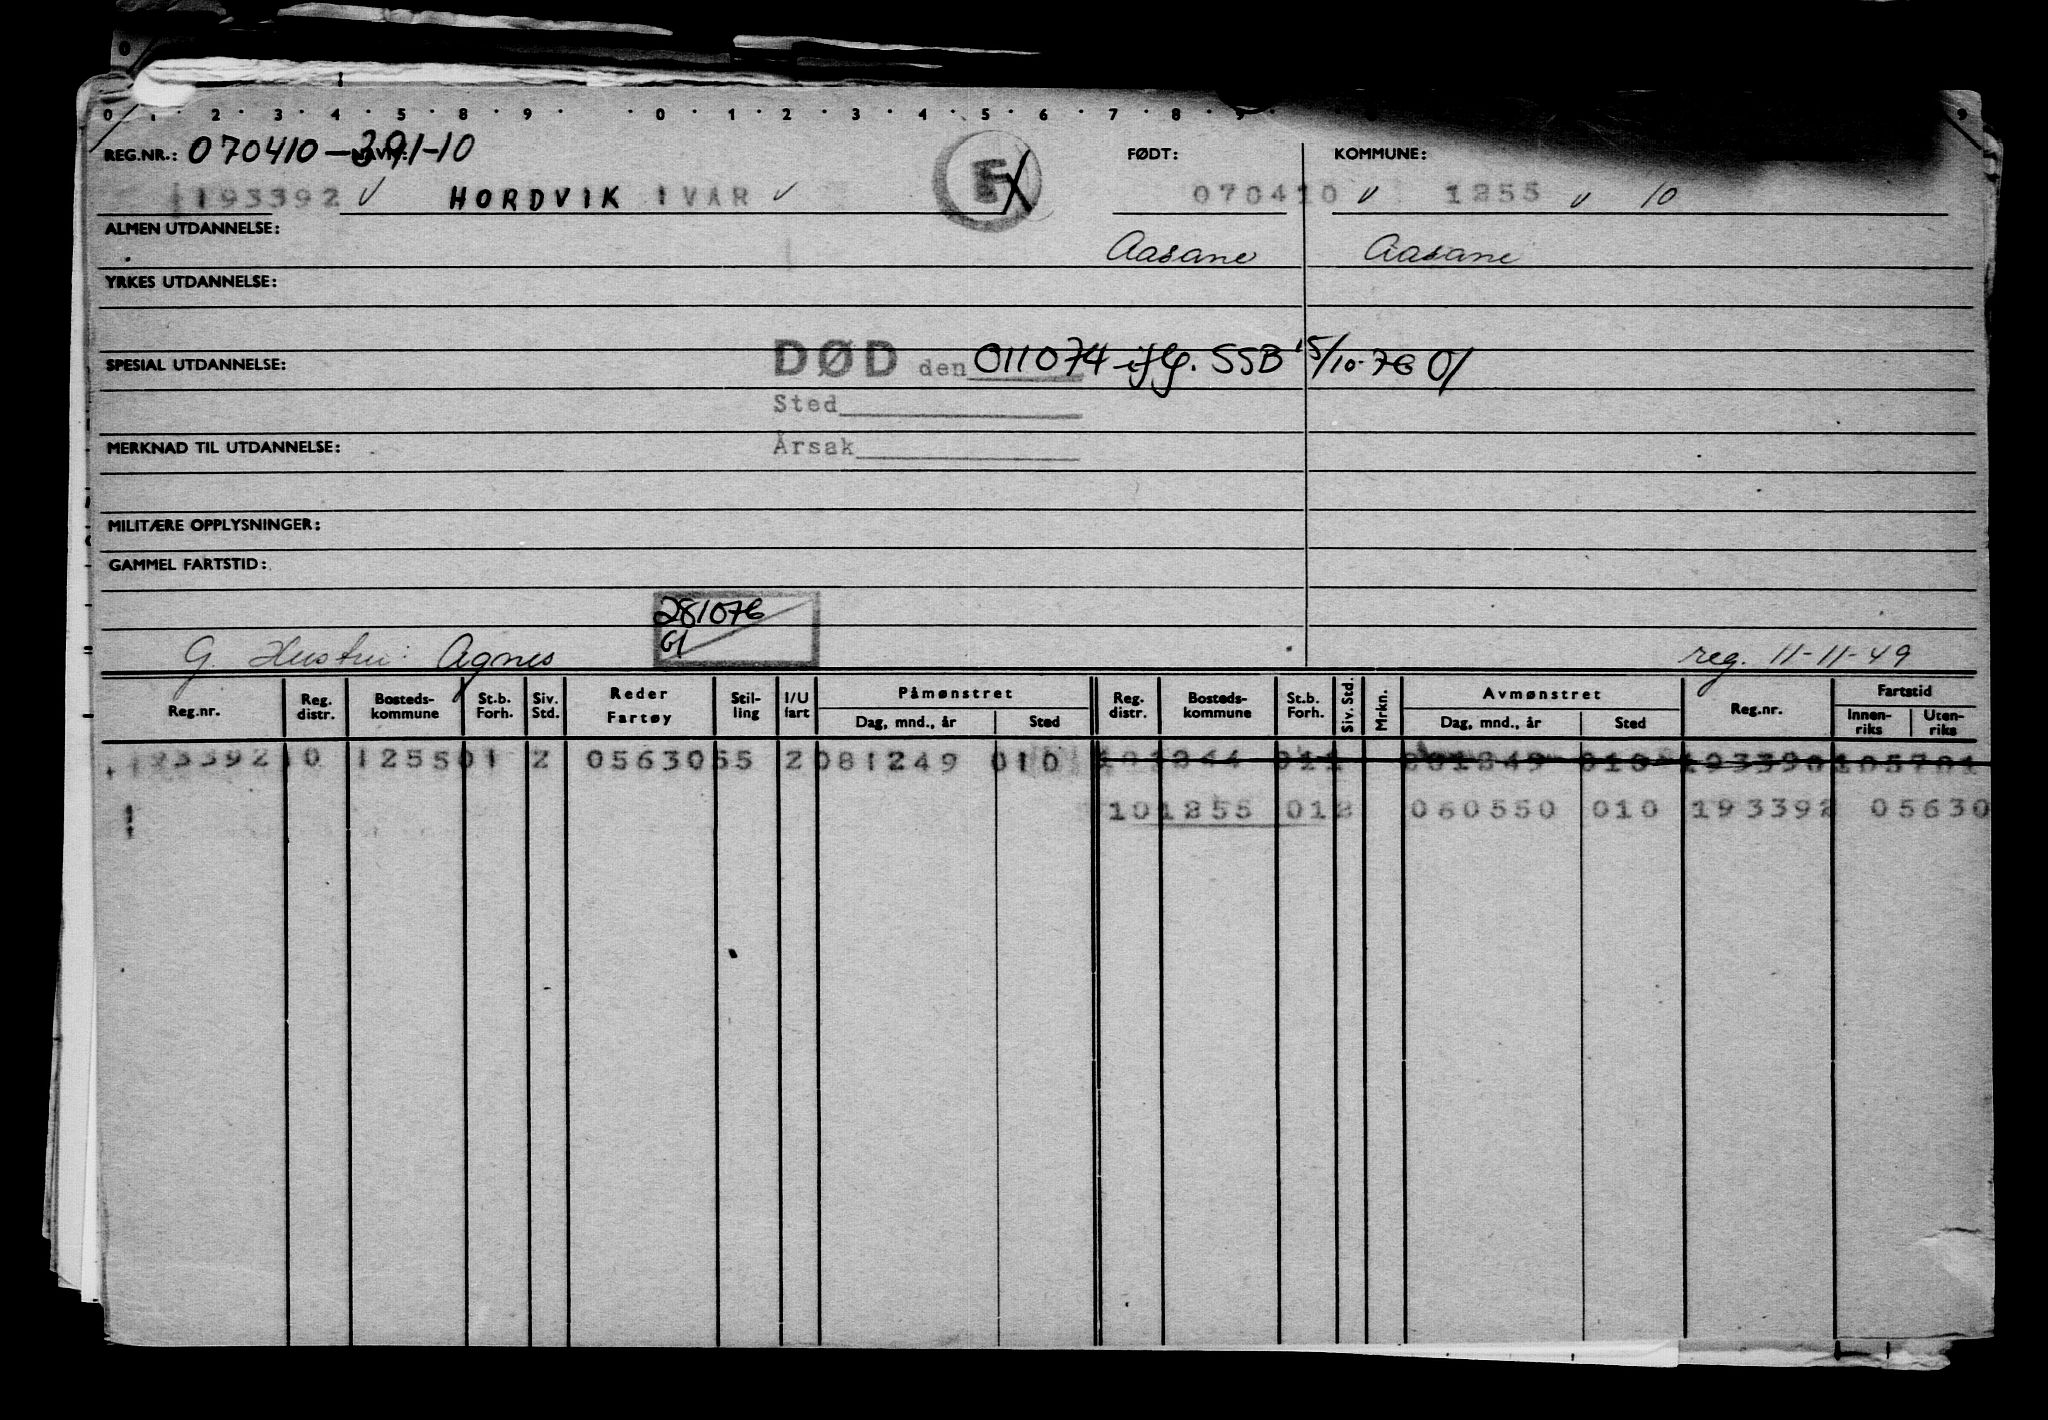 0 1 2 3 4 5 8 9 0 1 2 3 4 5 6 7 8 9 9
REG.NR.: 070410-391-10 NAVN: FØDT: KOMMUNE:
193392 V HORDVIK IVAR V E 070410 V 1255 V 10
ALMEN UTDANNELSE: Aasane Aasane
YRKES UTDANNELSE:
SPESIAL UTDANNELSE: DØD den 011074 iflg. SSB 15/10-76
Sted
MERKNAD TIL UTDANNELSE: Årsak
MILITÆRE OPPLYSNINGER:
GAMMEL FARTSTID:
281076
G. Hustru: Agnes reg. 11-11-49
Reg.nr. Reg. distr. Bosteds-kommune St.b. Forh. Siv. Std. Reder Fartøy Stil-ling I/U fart Påmønstret Dag, mnd., år Sted Reg. distr. Bosteds-kommune St.b. Forh. Siv. Std. Mrkn. Avmønstret Dag, mnd., år Sted Reg.nr. Fartstid Innen-riks Uten-riks
193392 10 1255 01 2 05630 55 2 081249 010
10 1255 01 2 060550 010 193392 05630